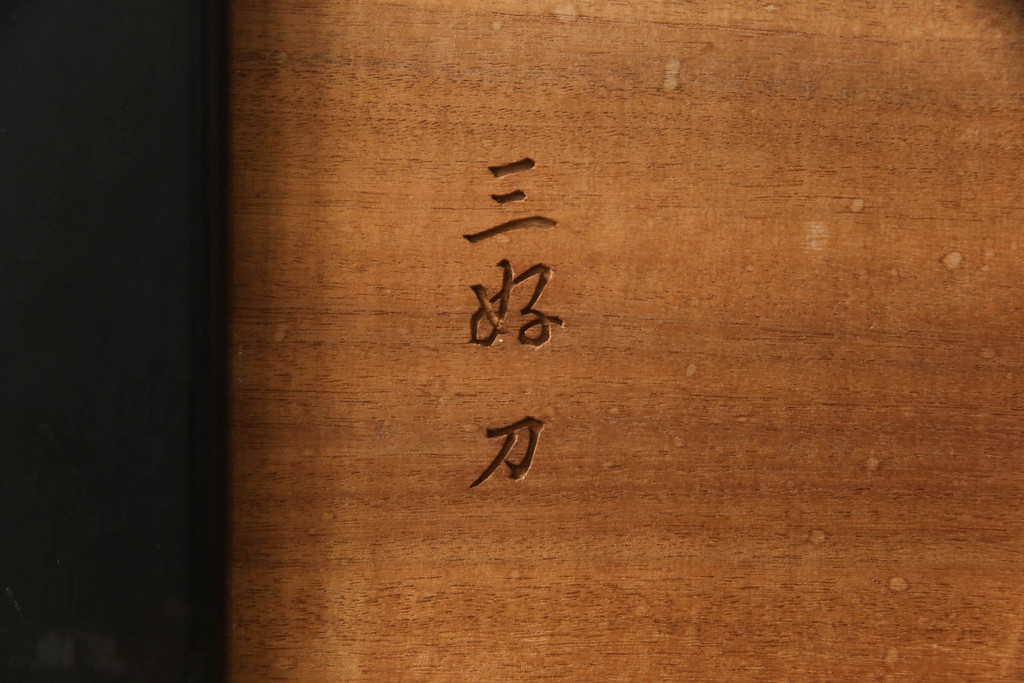 三好 刀